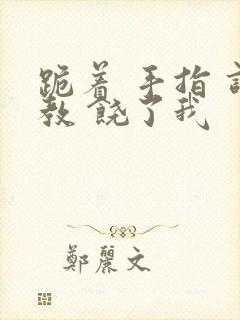 跪着 手指 
教 饶了我
鄭麗文